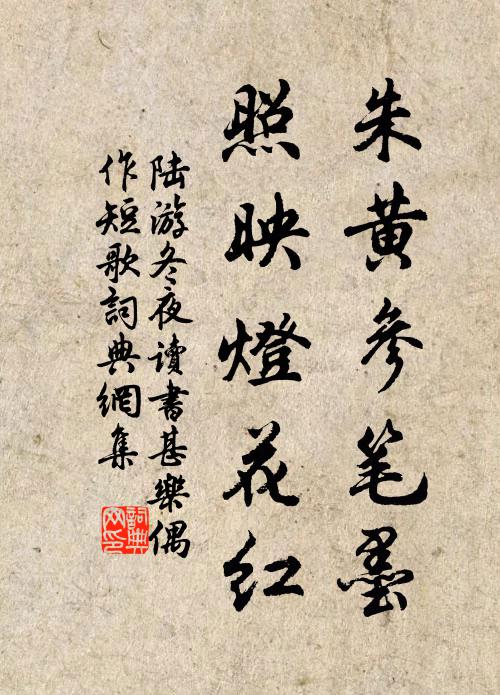 朱黄参笔墨
照映燈花紅
陆游冬夜读書甚樂偶
作短歌詞典網集
詞典
网印